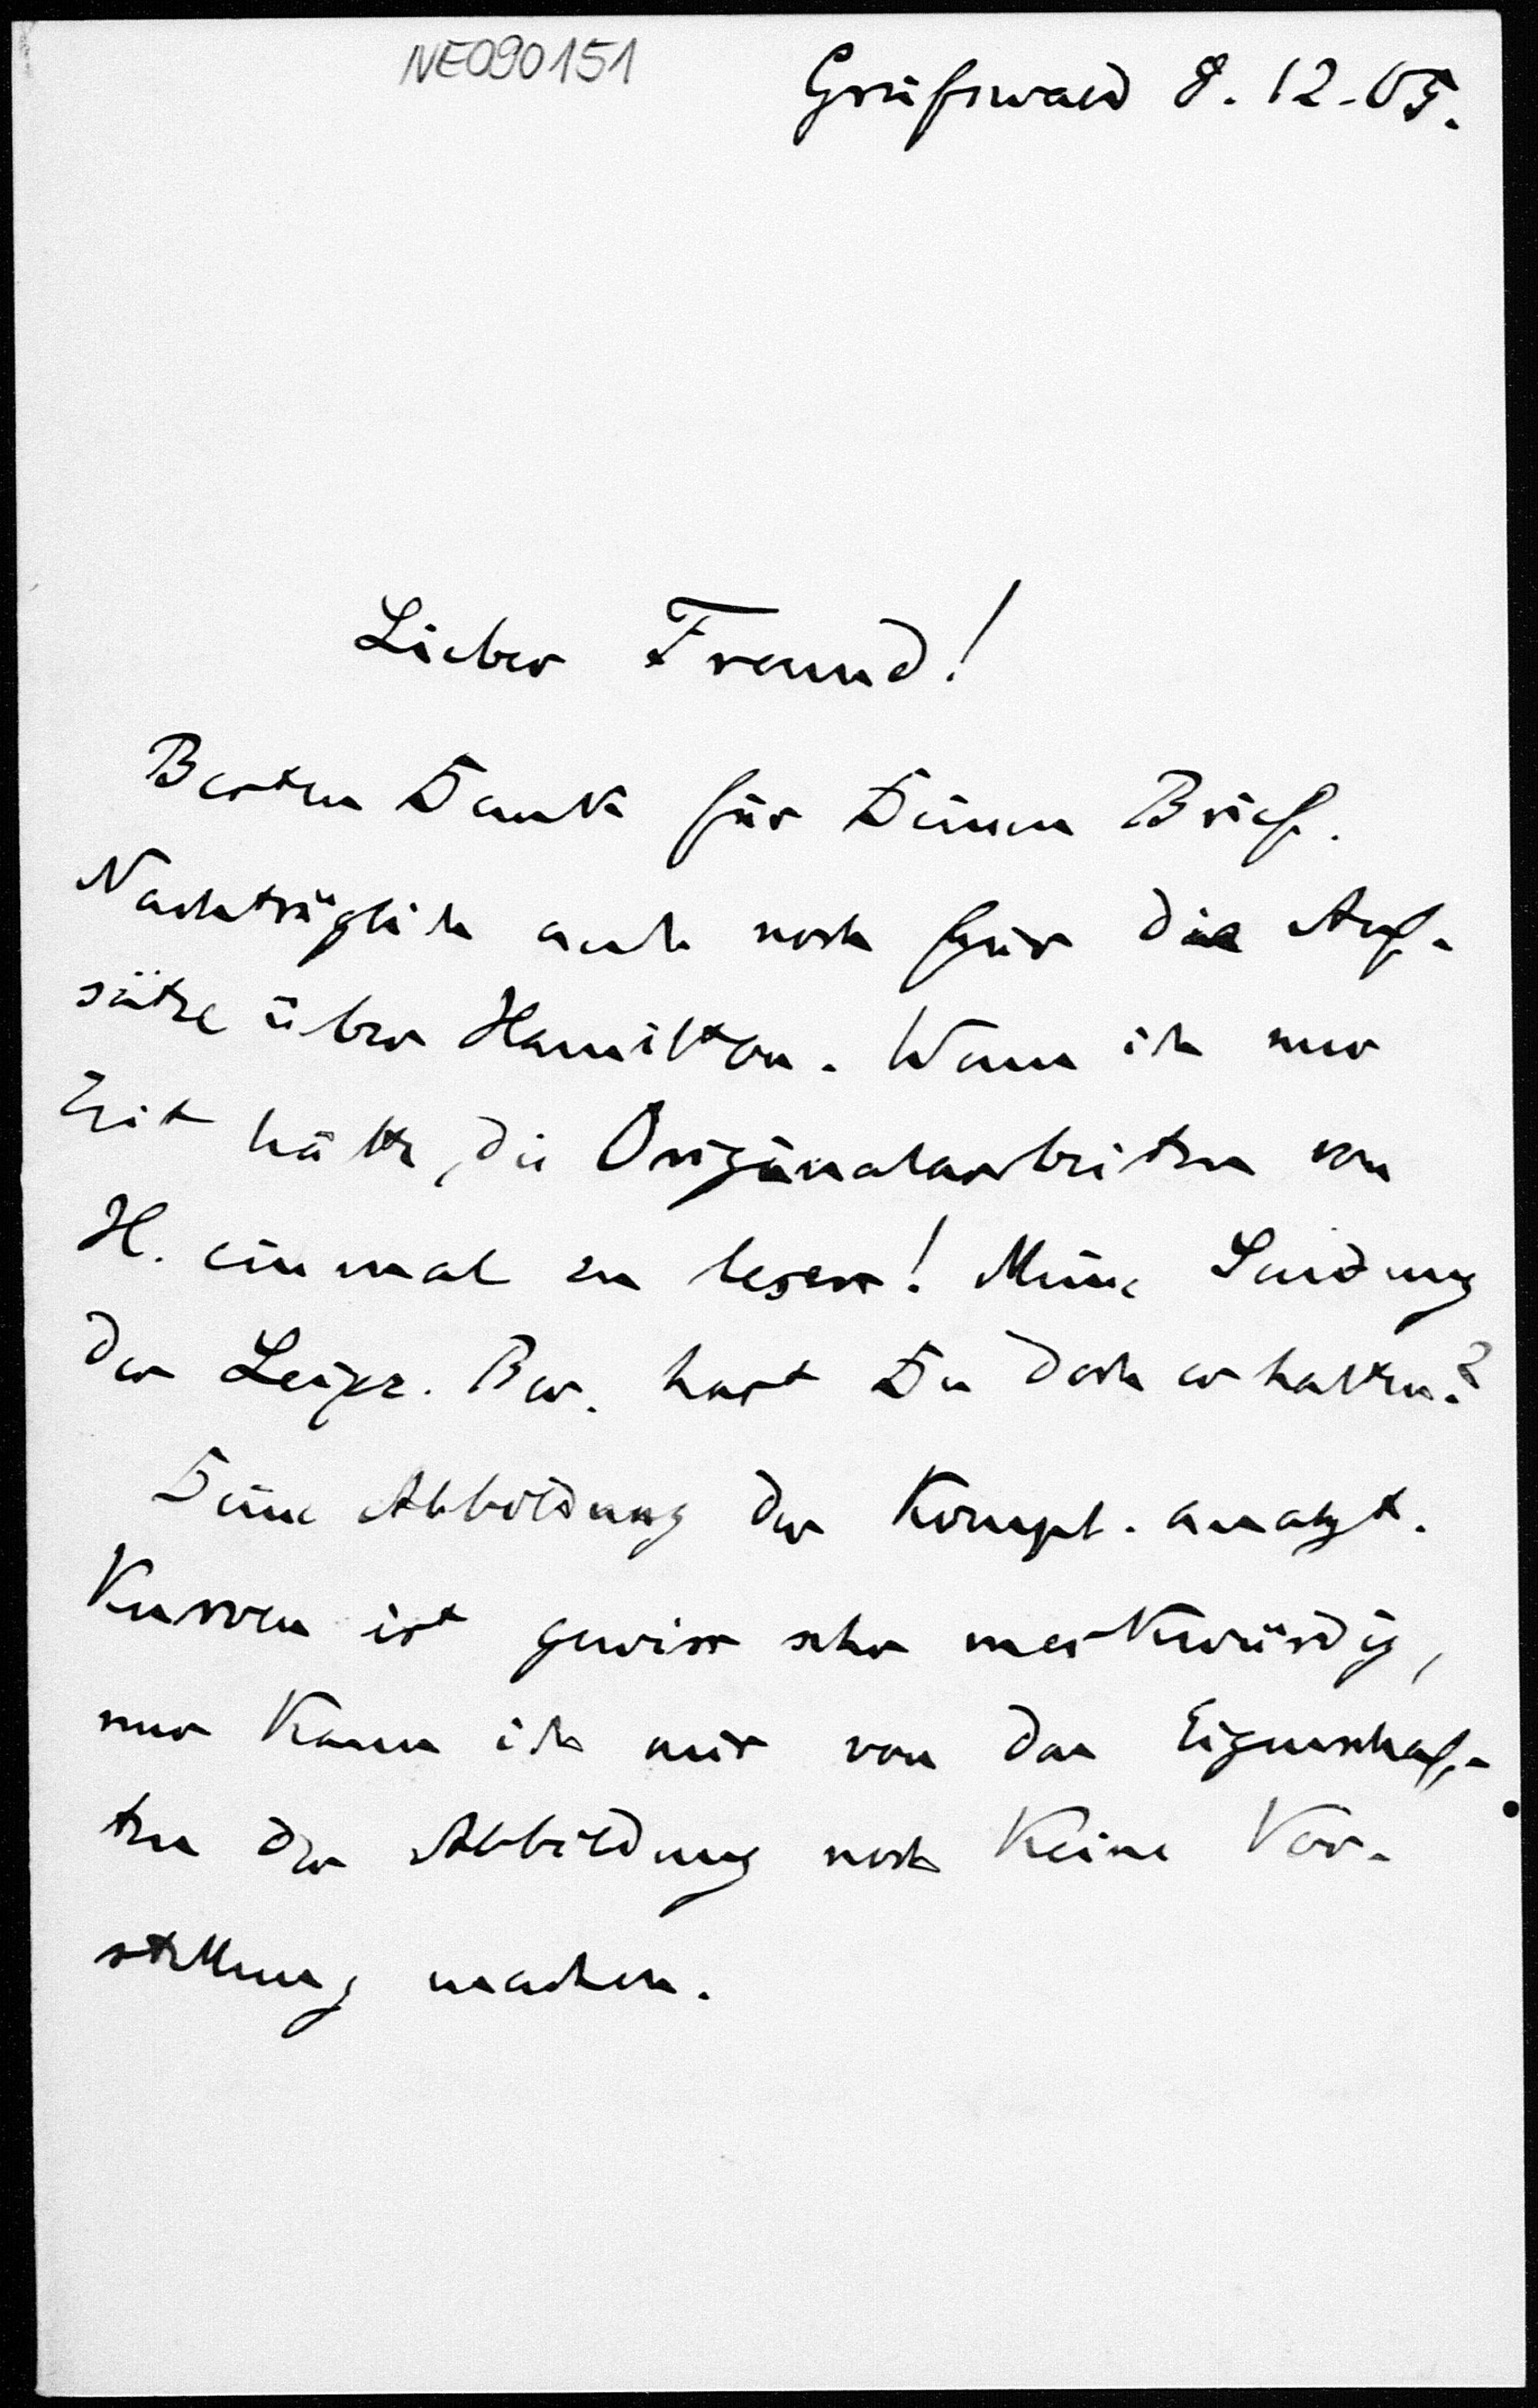 NE090151
Greifswald 8.12.05.
Lieber Freund!
Besten Dank für Deinen Brief.
Nachträglich auch noch für die Auf-
sätze über Hamilton. Wenn ich nur
Zeit hätte, die Originalarbeiten von
H. einmal zu lesen! Meine Sendung
der Leipz. Ber. hast Du doch erhalten?
Deine Abbildung der Kompl. analyt.
Kurven ist gewiss sehr merkwürdig,
nur kann ich mir von den Eigenschaf-
ten der Abbildung noch keine Vor-
stellung machen.